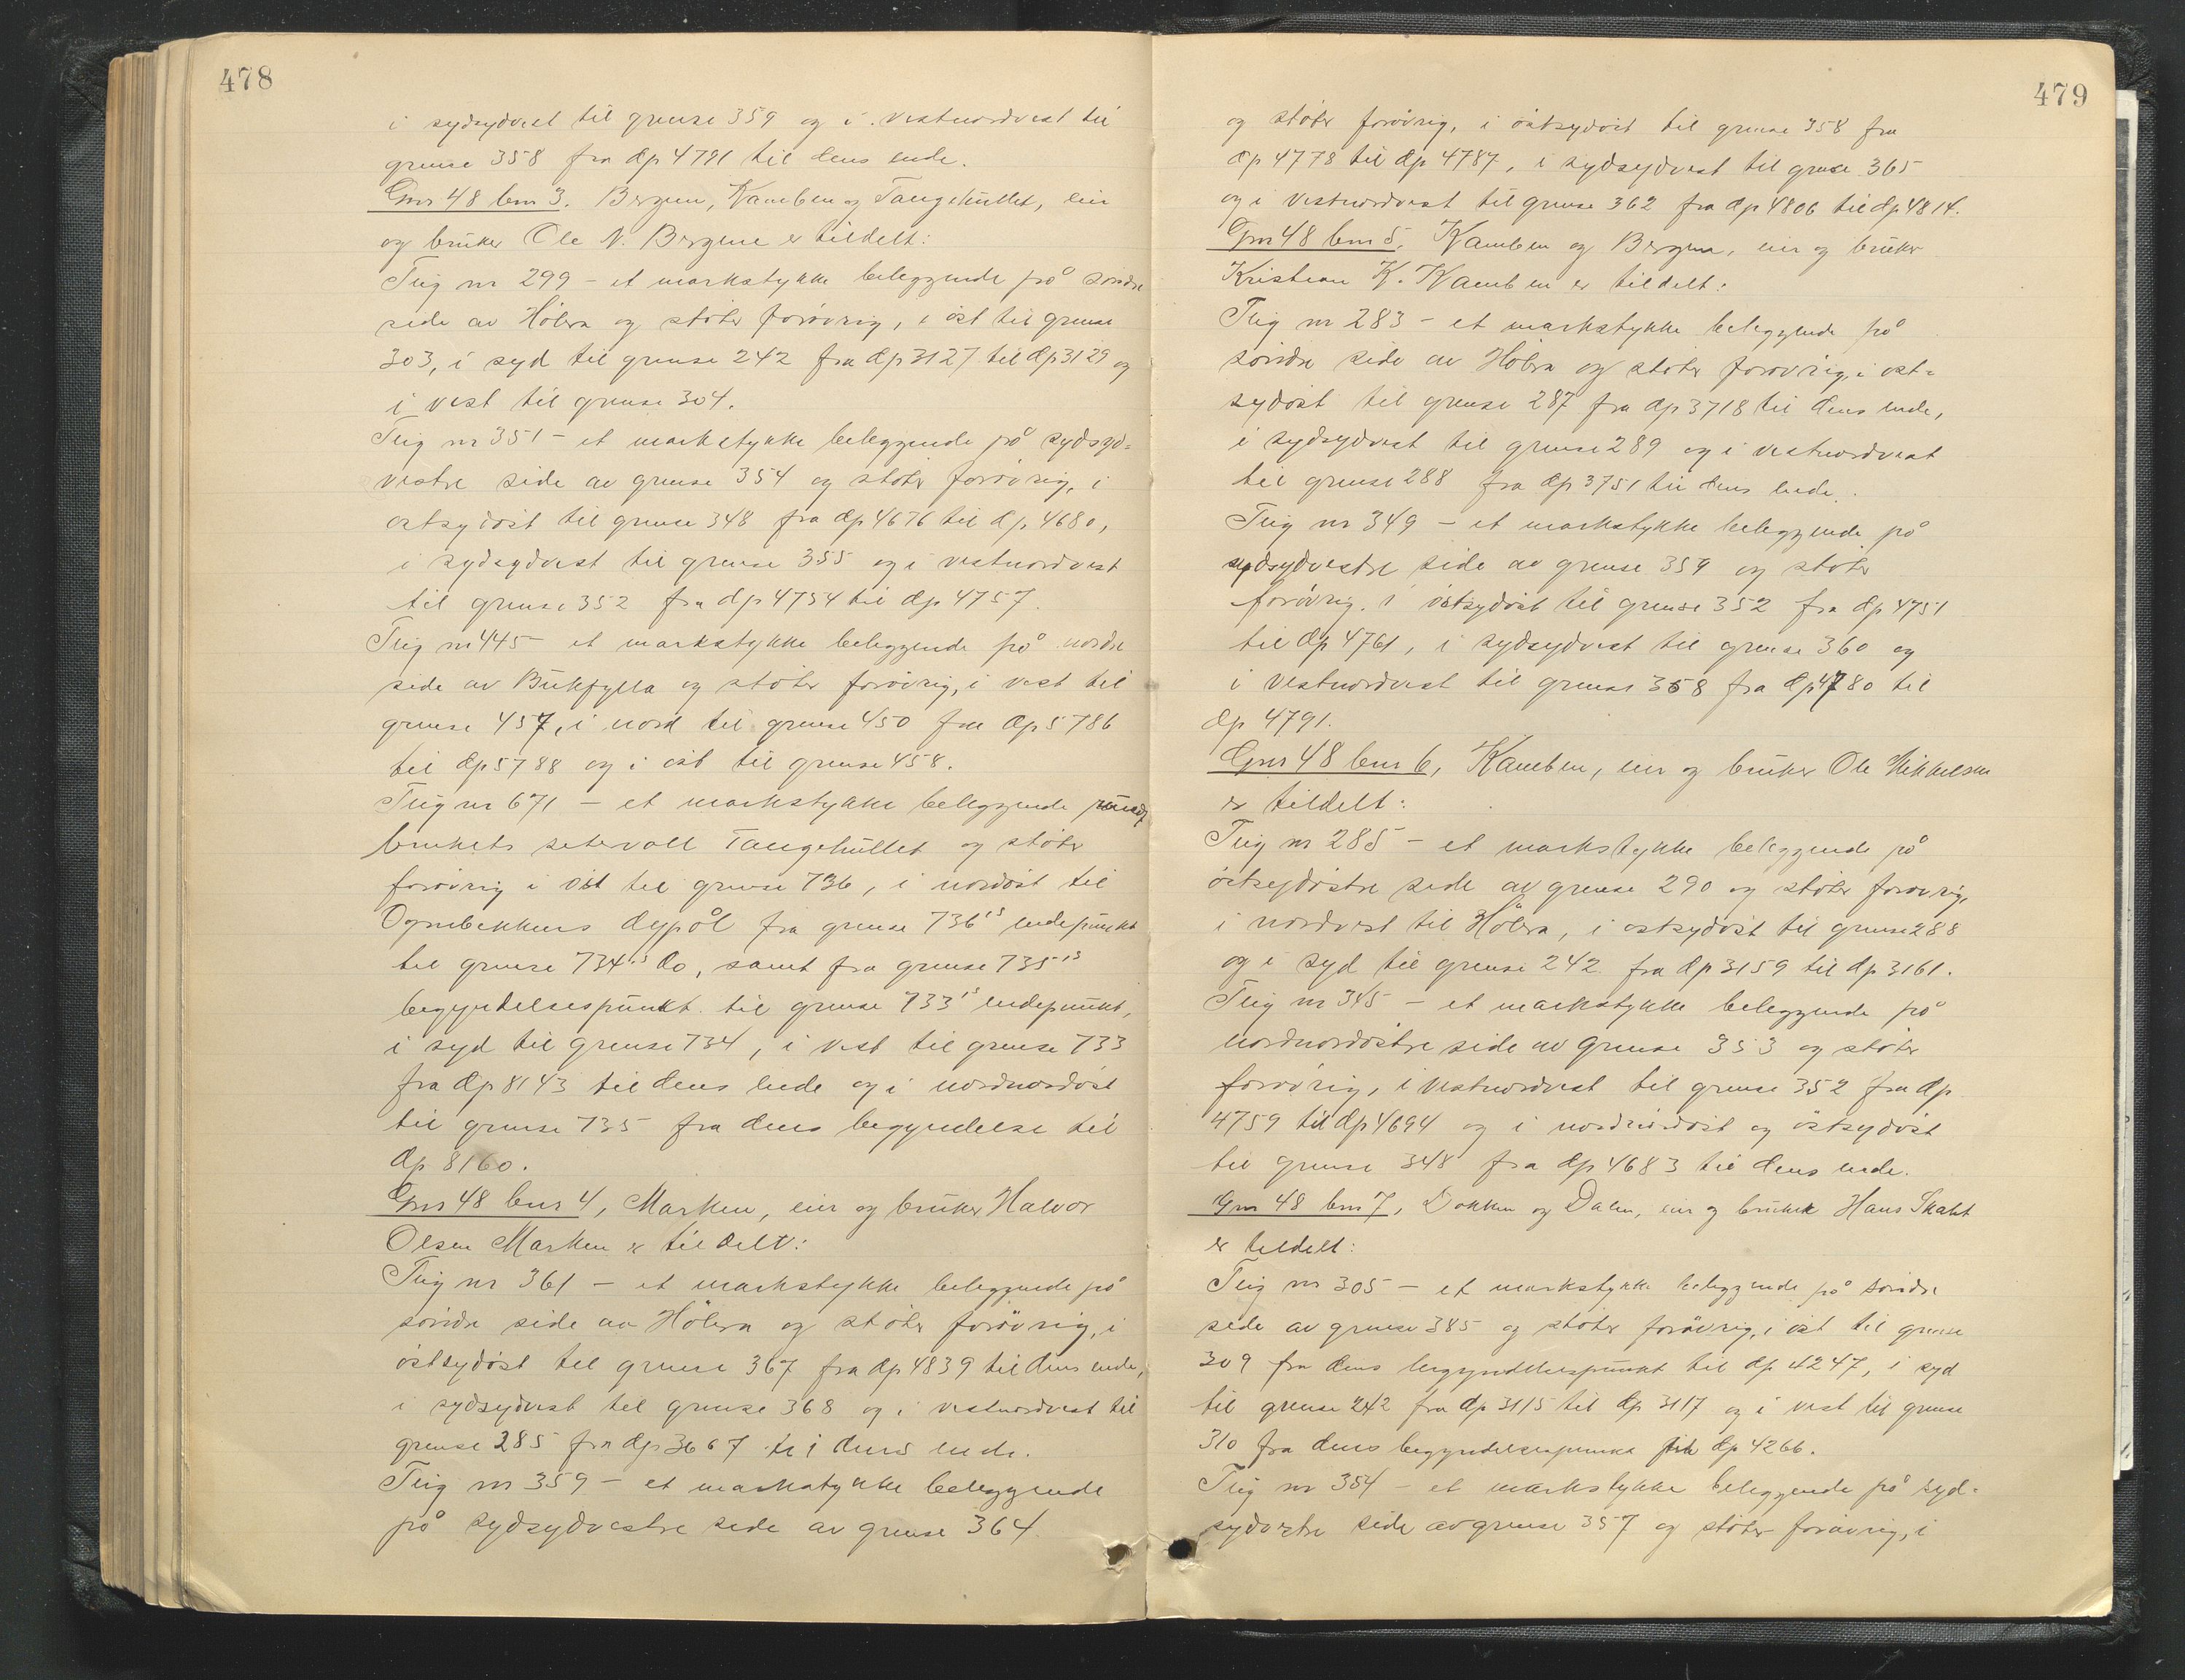 478
i sydsydvest til grense 359 og i vestnordvest til
grense 358 fra dp 4791 til dens ende.
Gnr 48 bnr 3. Bergene, Kamben og Tangehullet, eier
og bruker Ole N. Bergene er tildelt:
Teig nr 299 - et markstykke beleggende på söndre
side av Hölera og stöter forövrig, i öst til grense
303, i syd til grense 242 fra dp 3127 til dp 3129 og
i vest til grense 304.
Teig nr 351 - et markstykke beleggende på sydsyd=
vestre side av grense 354 og stöter forövrig, i
östsydöst til grense 348 fra dp 4676 til dp 4680,
i sydsydvest til grense 355 og i vestnordvest
til grense 352 fra dp 4754 til dp 4757.
Teig nr 445 - et markstykke beleggende på nordre
side av Bukfjella og stöter forövrig, i vest til
grense 457, i nord til grense 450 fra dp 5786
til dp 5788 og i öst til grense 458.
Teig nr 671 - et markstykke beleggende rundt
brukets setervoll Tangehullet og stöter
forövrig i öst til grense 736, i nordöst til
Ognebekkens dypål fra grense 736's endepunkt
til grense 734's do, samt fra grense 735's
begyndelsespunkt til grense 733's endepunkt,
i syd til grense 734, i vest til grense 733
fra dp 8143 til dens ende og i nordnordöst
til grense 735 fra dens begyndelse til
dp 8160.
Gnr 48 bnr 4, Marken, eier og bruker Halvor
Olsen Marken er tildelt:
Teig nr 361 - et markstykke beleggende på
söndre side av Hölera og stöter forövrig, i
östsydöst til grense 367 fra dp 4839 til dens ende,
i sydsydvest til grense 368 og i vestnordvest til
grense 285 fra dp 3667 til dens ende.
Teig nr 359 - et markstykke beleggende
på sydsydvestre side av grense 364
479
og stöter forövrig, i östsydöst til grense 358 fra
dp 4778 til dp 4787, i sydsydvest til grense 365
og i vestnordvest til grense 362 fra dp 4806 til dp 4814.
Gnr 48 bnr 5, Kamben og Bergene, eier og bruker
Kristian K. Kamben er tildelt:
Teig nr 283 - et markstykke beleggende på
söndre side av Hölera og stöter forövrig, i öst=
sydöst til grense 287 fra dp 3718 til dens ende,
i sydsydvest til grense 289 og i vestnordvest
til grense 288 fra dp 3751 til dens ende.
Teig nr 349 - et markstykke beleggende på
sydsydvestre side av grense 359 og stöter
forövrig. i östsydöst til grense 352 fra dp 4751
til dp 4761, i sydsydvest til grense 360 og
i vestnordvest til grense 358 fra dp 4780 til
dp 4791.
Gnr 48 bnr 6, Kamben, eier og bruker Ole Mikkelsen
er tildelt:
Teig nr 285 - et markstykke beleggende på
östsydöstre side av grense 290 og stöter forövrig,
i nordvest til Hölera, i östsydöst til grense 288
og i syd til grense 242 fra dp 3159 til dp 3161.
Teig nr 345 - et markstykke beleggende på
nordnordöstre side av grense 353 og stöter
forövrig, i vestnordvest til grense 352 fra dp
4759 til dp 4694 og i nordnordöst og östsydöst
til grense 348 fra dp 4683 til dens ende.
Gnr 48 bnr 7, Dokken og Dalen, eier og bruker Hans
er tildelt:
Teig nr 305 - et markstykke beleggende på söndre
side av grense 385 og stöter forövrig, i öst til grense
309 fra dens begyndelsespunkt til dp 4247, i syd
til grense 242 fra dp 3115 til dp 3117 og i vest til grense
310 fra dens begyndelsespunkt til dp 4266.
Teig nr 354 - et markstykke beleggende på syd=
sydvestre side av grense 357 og stöter forövrig, i